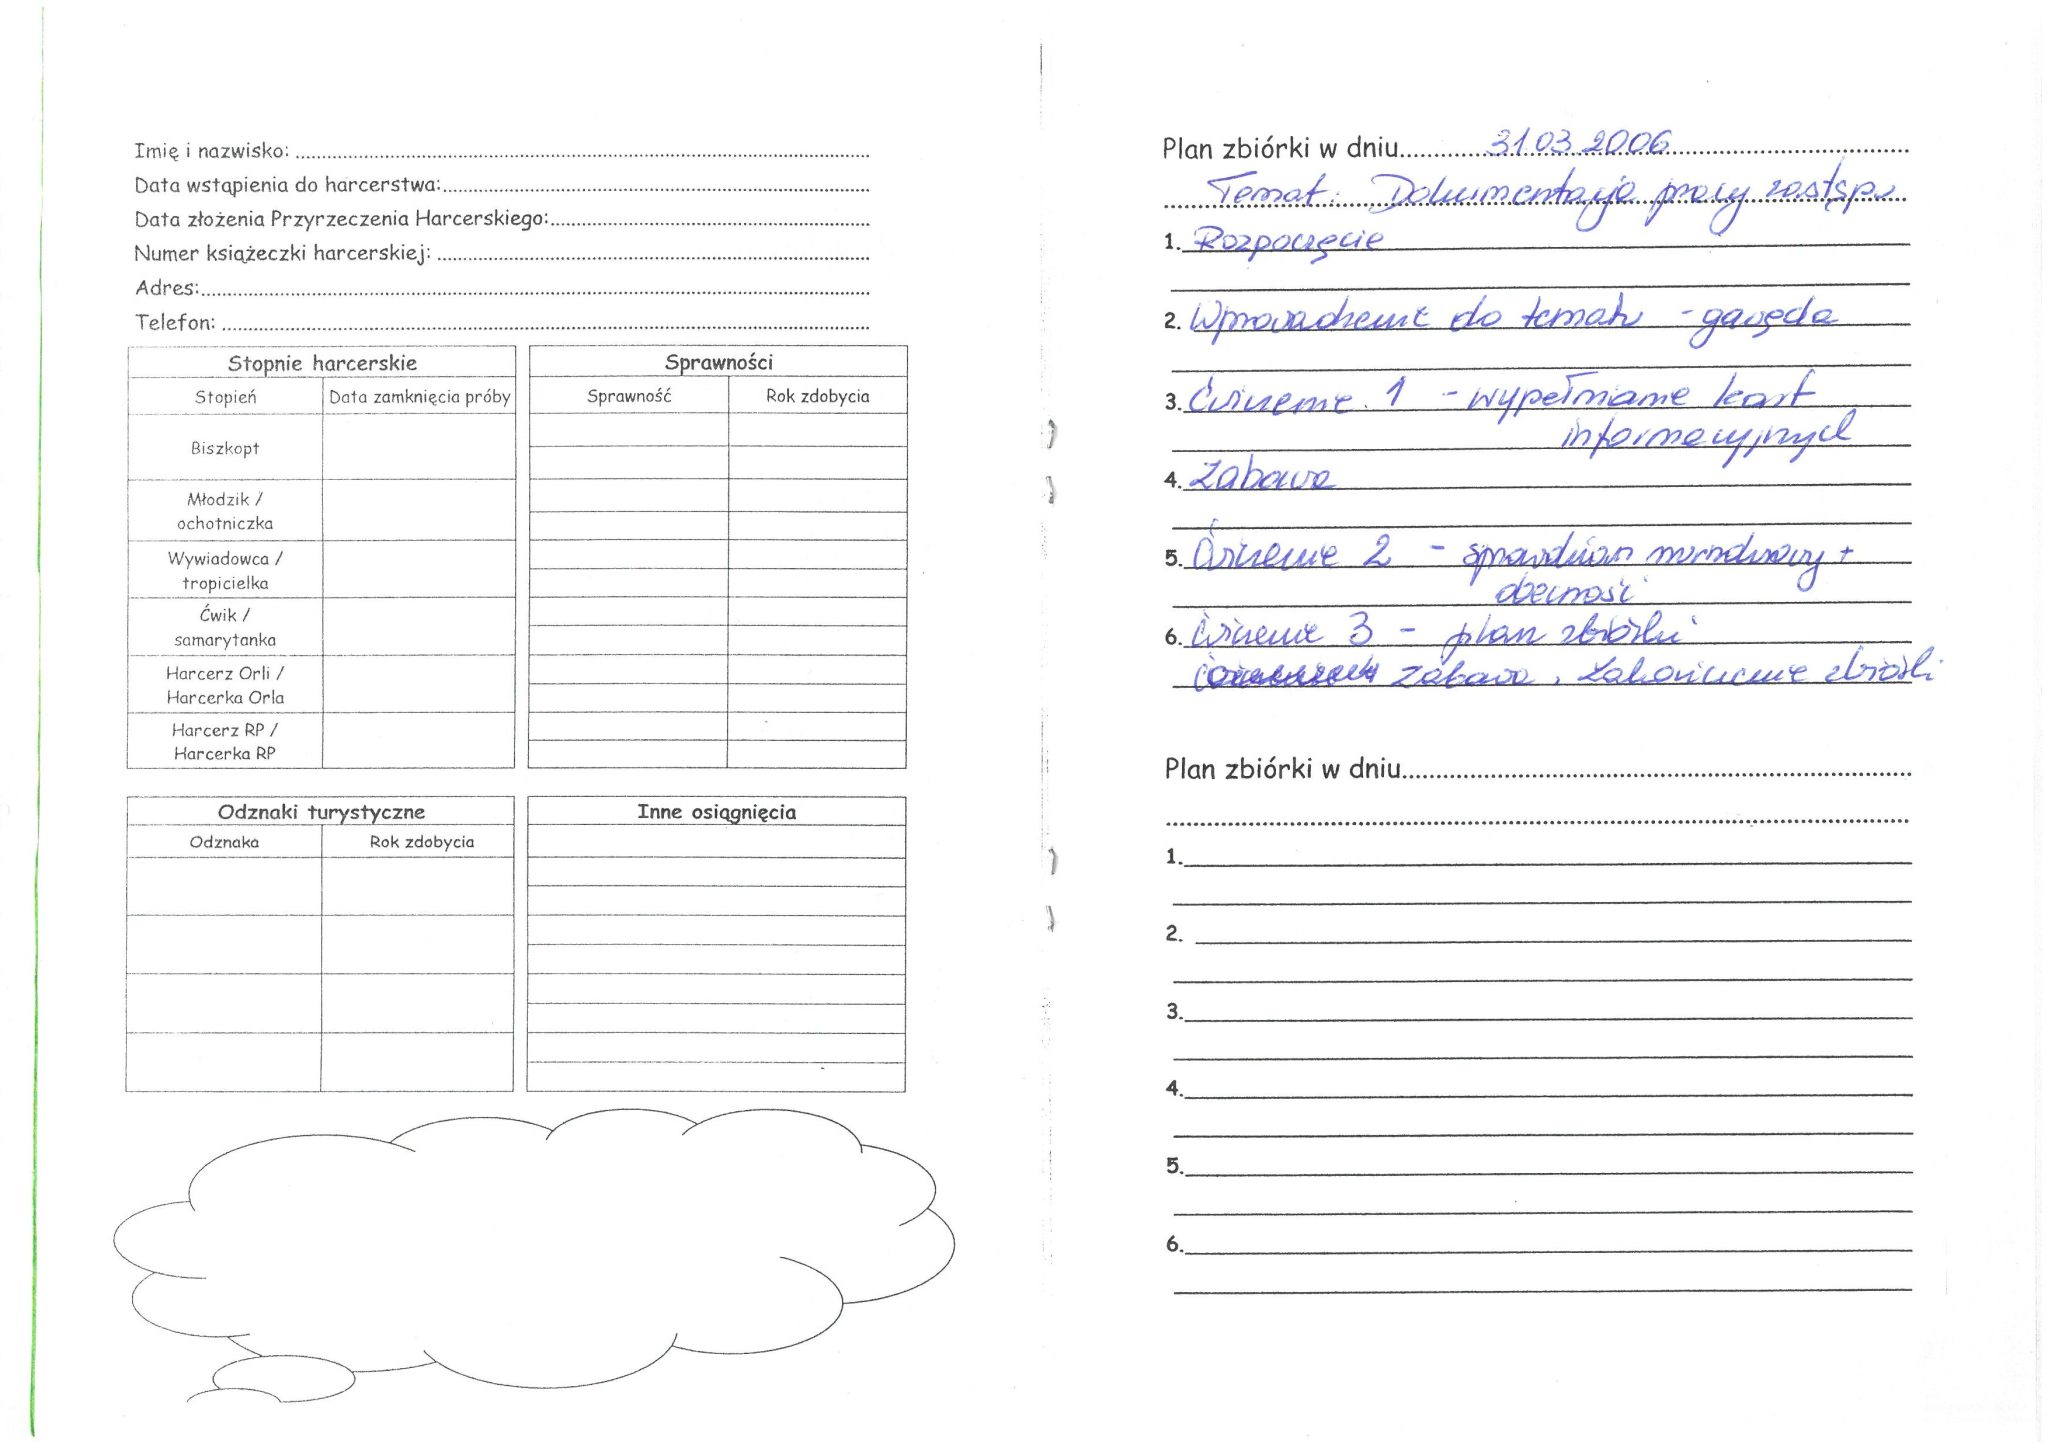 Imię i nazwisko:
Data wstąpienia do harcerstwa:
Data złożenia Przyrzeczenia Harcerskiego:
Numer książeczki harcerskiej:
Adres:
Telefon:
Stopnie harcerskie
Stopień Data zamknięcia próby
Biszkopt
Młodzik /
ochotniczka
Wywiadowca /
tropicielka
Ćwik /
samarytanka
Harcerz Orli /
Harcerka Orla
Harcerz RP /
Harcerka RP
Sprawności
Sprawność Rok zdobycia
Odznaki turystyczne
Odznaka Rok zdobycia
Inne osiągnięcia
Plan zbiórki w dniu 31.03.2006
Temat: Dokumentacja pracy zastępu
1. Rozpoczęcie
2. Wprowadzenie do tematu - gawęda
3. Ćwiczenie 1 - wypełnianie kart
informacyjnych
4. Zabawa
5. Ćwiczenie 2 - sprawdzian mundurowy +
obecność
6. Ćwiczenie 3 - plan zbiórki
Zabawa, Zakończenie zbiórki
Plan zbiórki w dniu
1.
2.
3.
4.
5.
6.